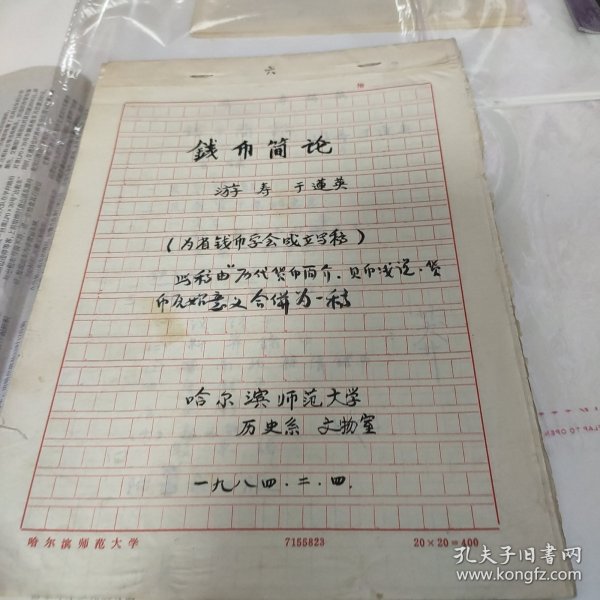 六
錢币简论
游寿 于莲英
(为省钱币学会成立写稿)
此稿由"历代货币简介、贝币浅说、货
币及始意义合併为一稿
哈尔滨师范大学
历史系 文物室
一九八四.二.四.
哈尔滨师范大学 7155823 20×20=400
孔夫子旧书网
www.kongfz.com